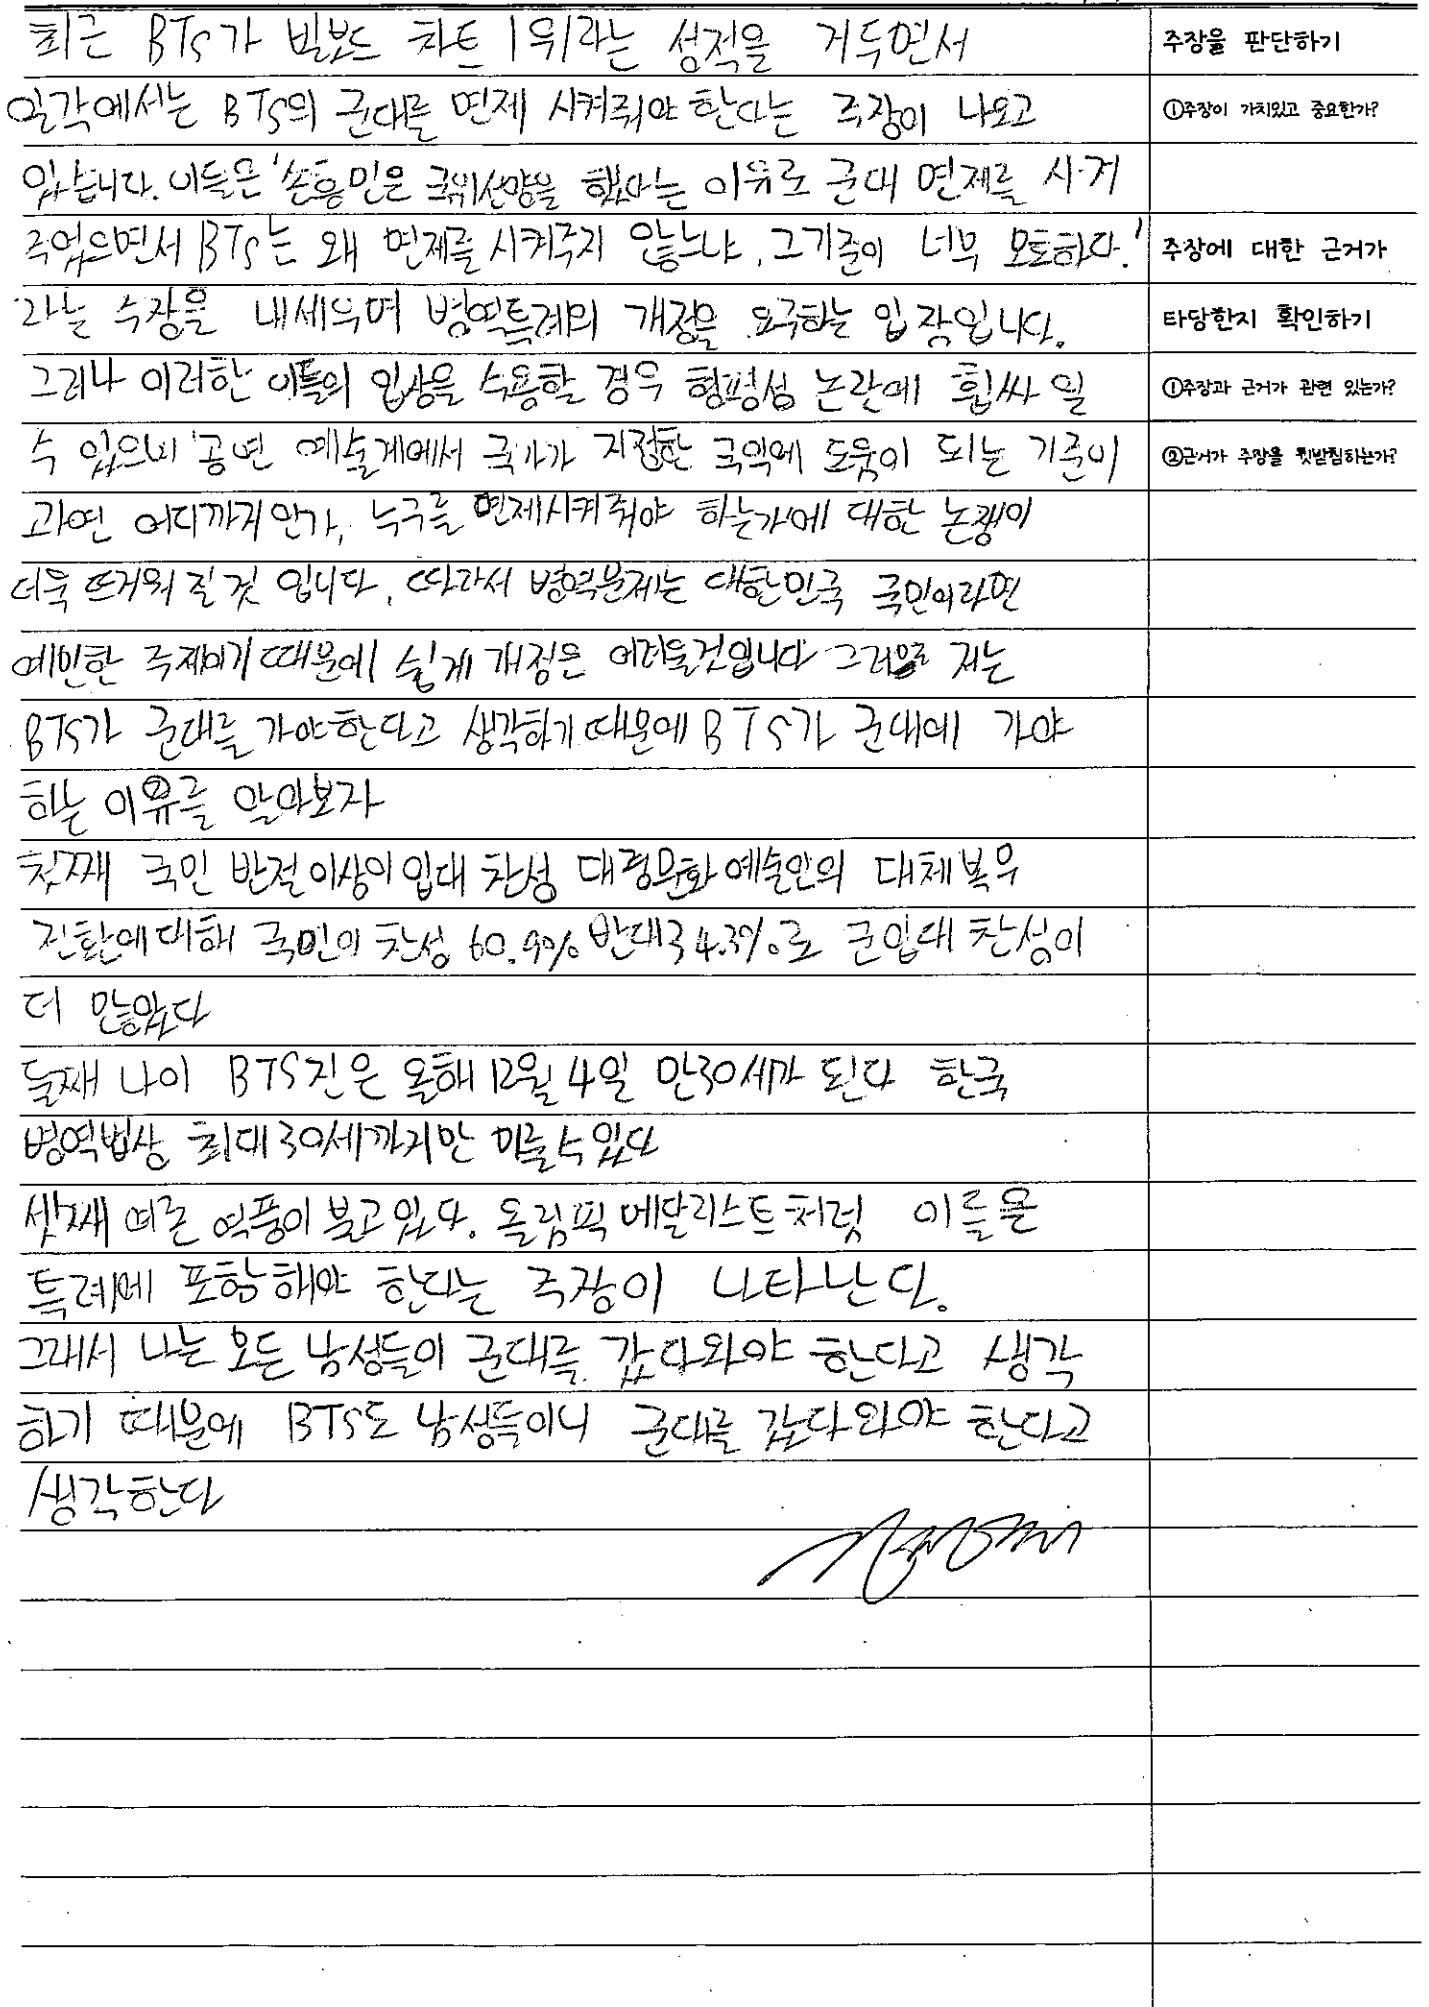 최근 BTS가 빌보드 차트 1위라는 성적을 거두면서
일각에서는 BTS의 군대를 면제 시켜줘야 한다는 주장이 나오고
있습니다. 이들은 '손흥민은 국위선양을 했다는 이유로 군대 면제를 시켜
주었으면서 BTS는 왜 면제를 시켜주지 않느냐, 그기준이 너무 모호하다.'
라는 주장을 내세우며 병역특례의 개정을 요구하는 입장입니다.
그러나 이러한 이들의 입장을 수용할 경우 형평성 논란에 휩싸 일
수 있으며 '공연 예술계에서 국가가 지정한 국익에 도움이 되는 기준이
과연 어디까지 인가, 누구를 면제시켜줘야 하는가'에 대한 논쟁이
더욱 뜨거워 질 것 입니다. 따라서 병역문제는 대한민국 국민이라면
예민한 주제이기 때문에 쉽게 개정은 어려울것입니다 그러므로 저는
BTS가 군대를 가야한다고 생각하기 때문에 BTS가 군대에 가야
하는 이유를 알아보자
첫째 국민 반절이상이 입대 찬성 대중문화 예술인의 대체복무
전환에 대해 국민의 찬성 60.9% 반대34.3%로 군입대 찬성이
더 많았다
둘째 나이 BTS진은 올해 12월 4일 만30세가 된다 한국
병역법상 최대 30세까지만 미룰수있다
셋째 때론 역풍이 불고있다. 올림픽 메달리스트처럼 이들은
특례에 포함해야 한다는 주장이 나타난다.
그래서 나는 모든 남성들이 군대를 갔다와야 한다고 생각
하기 때문에 BTS도 남성들이니 군대를 갔다와야 한다고
생각한다
주장을 판단하기
①주장이 가치있고 중요한가?
주장에 대한 근거가
타당한지 확인하기
①주장과 근거가 관련 있는가?
②근거가 주장을 뒷받침하는가?